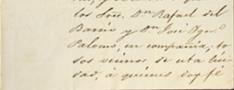 los Sres. Dn Rafael del
Barrio y Dn José Ygn.
Palomo, en compañia, to
dos vecinos de esta Ciu
dad, á quienes doy fé